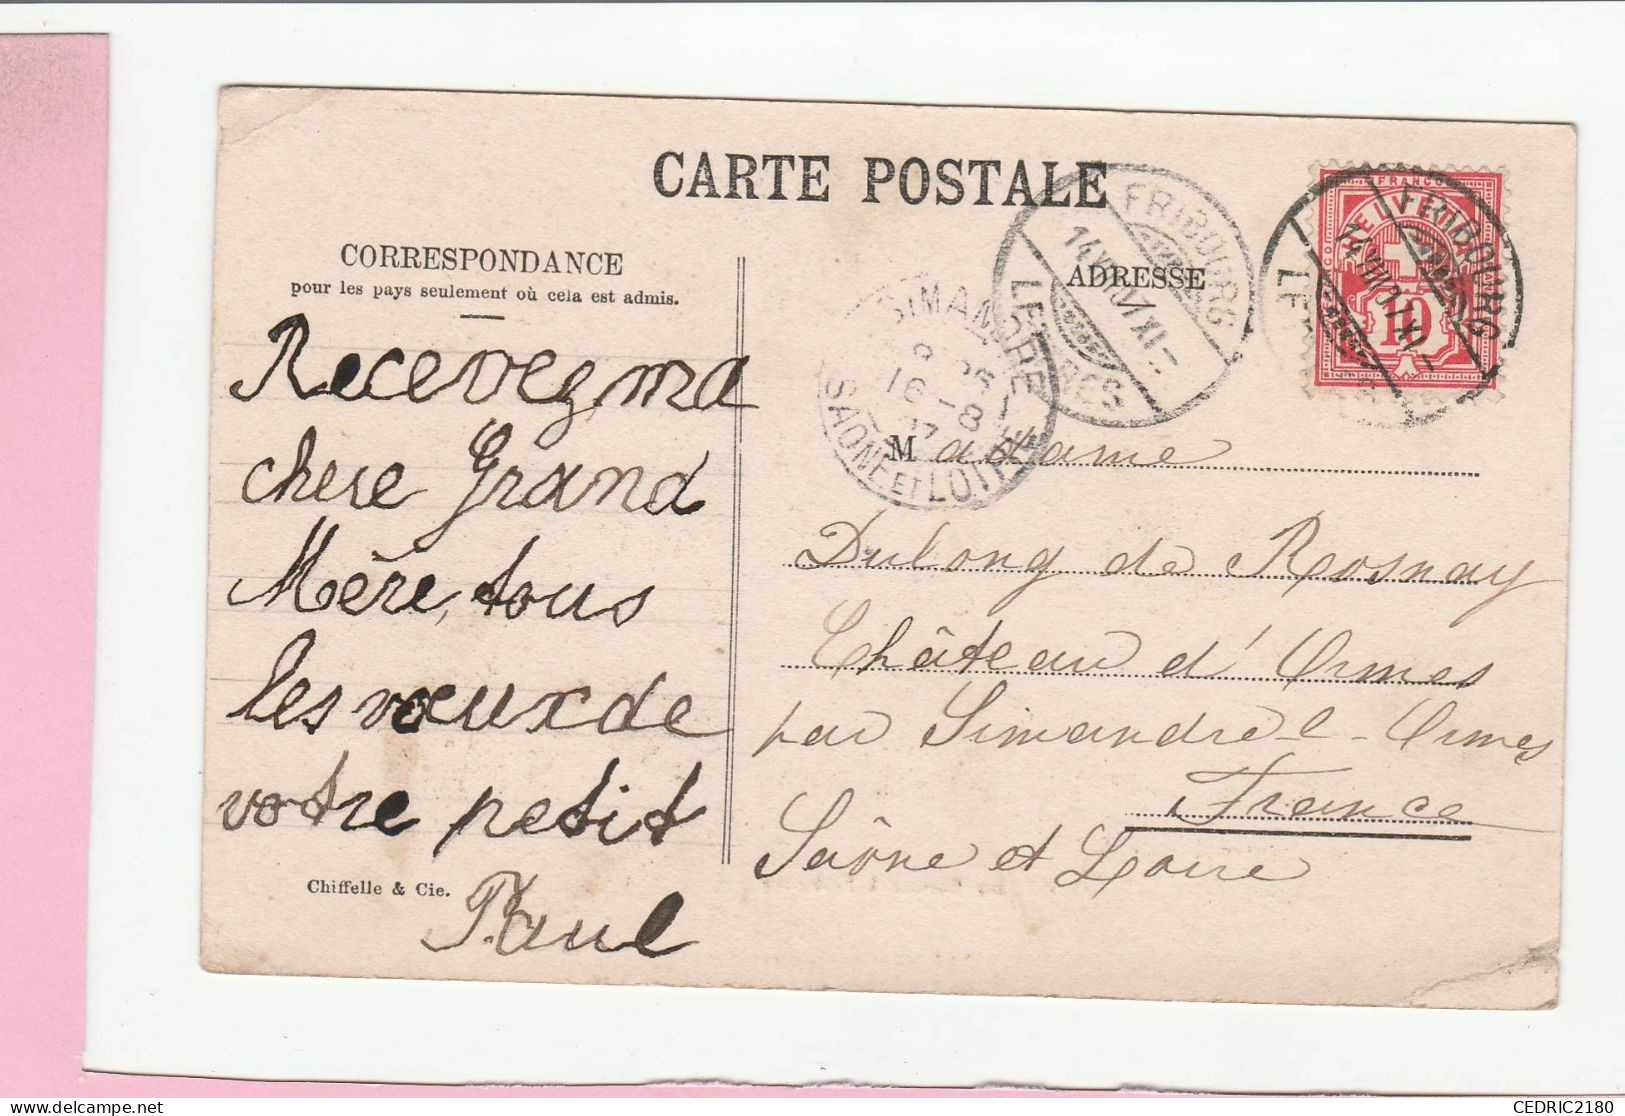 CARTE POSTALE
CORRESPONDANCE
pour les pays seulement où cela est admis.
Recevez ma
chere Grand
Mère, tous
les vœux de
votre petit
Paul
Chiffelle & Cie.
ADRESSE
FRIBOURG
14 VIII 07 XI -
LETTRES
FRANCO
HELVETIA
10
FRIBOURG
14 VIII 07 XI -
SIMANDRE
16 - 8
07
SAÔNE ET LOIRE
Madame
Dulong de Rosnay
Château d'Ormes
par Simandre-l-Ormes
France
Saône et Loire
CEDRIC2180